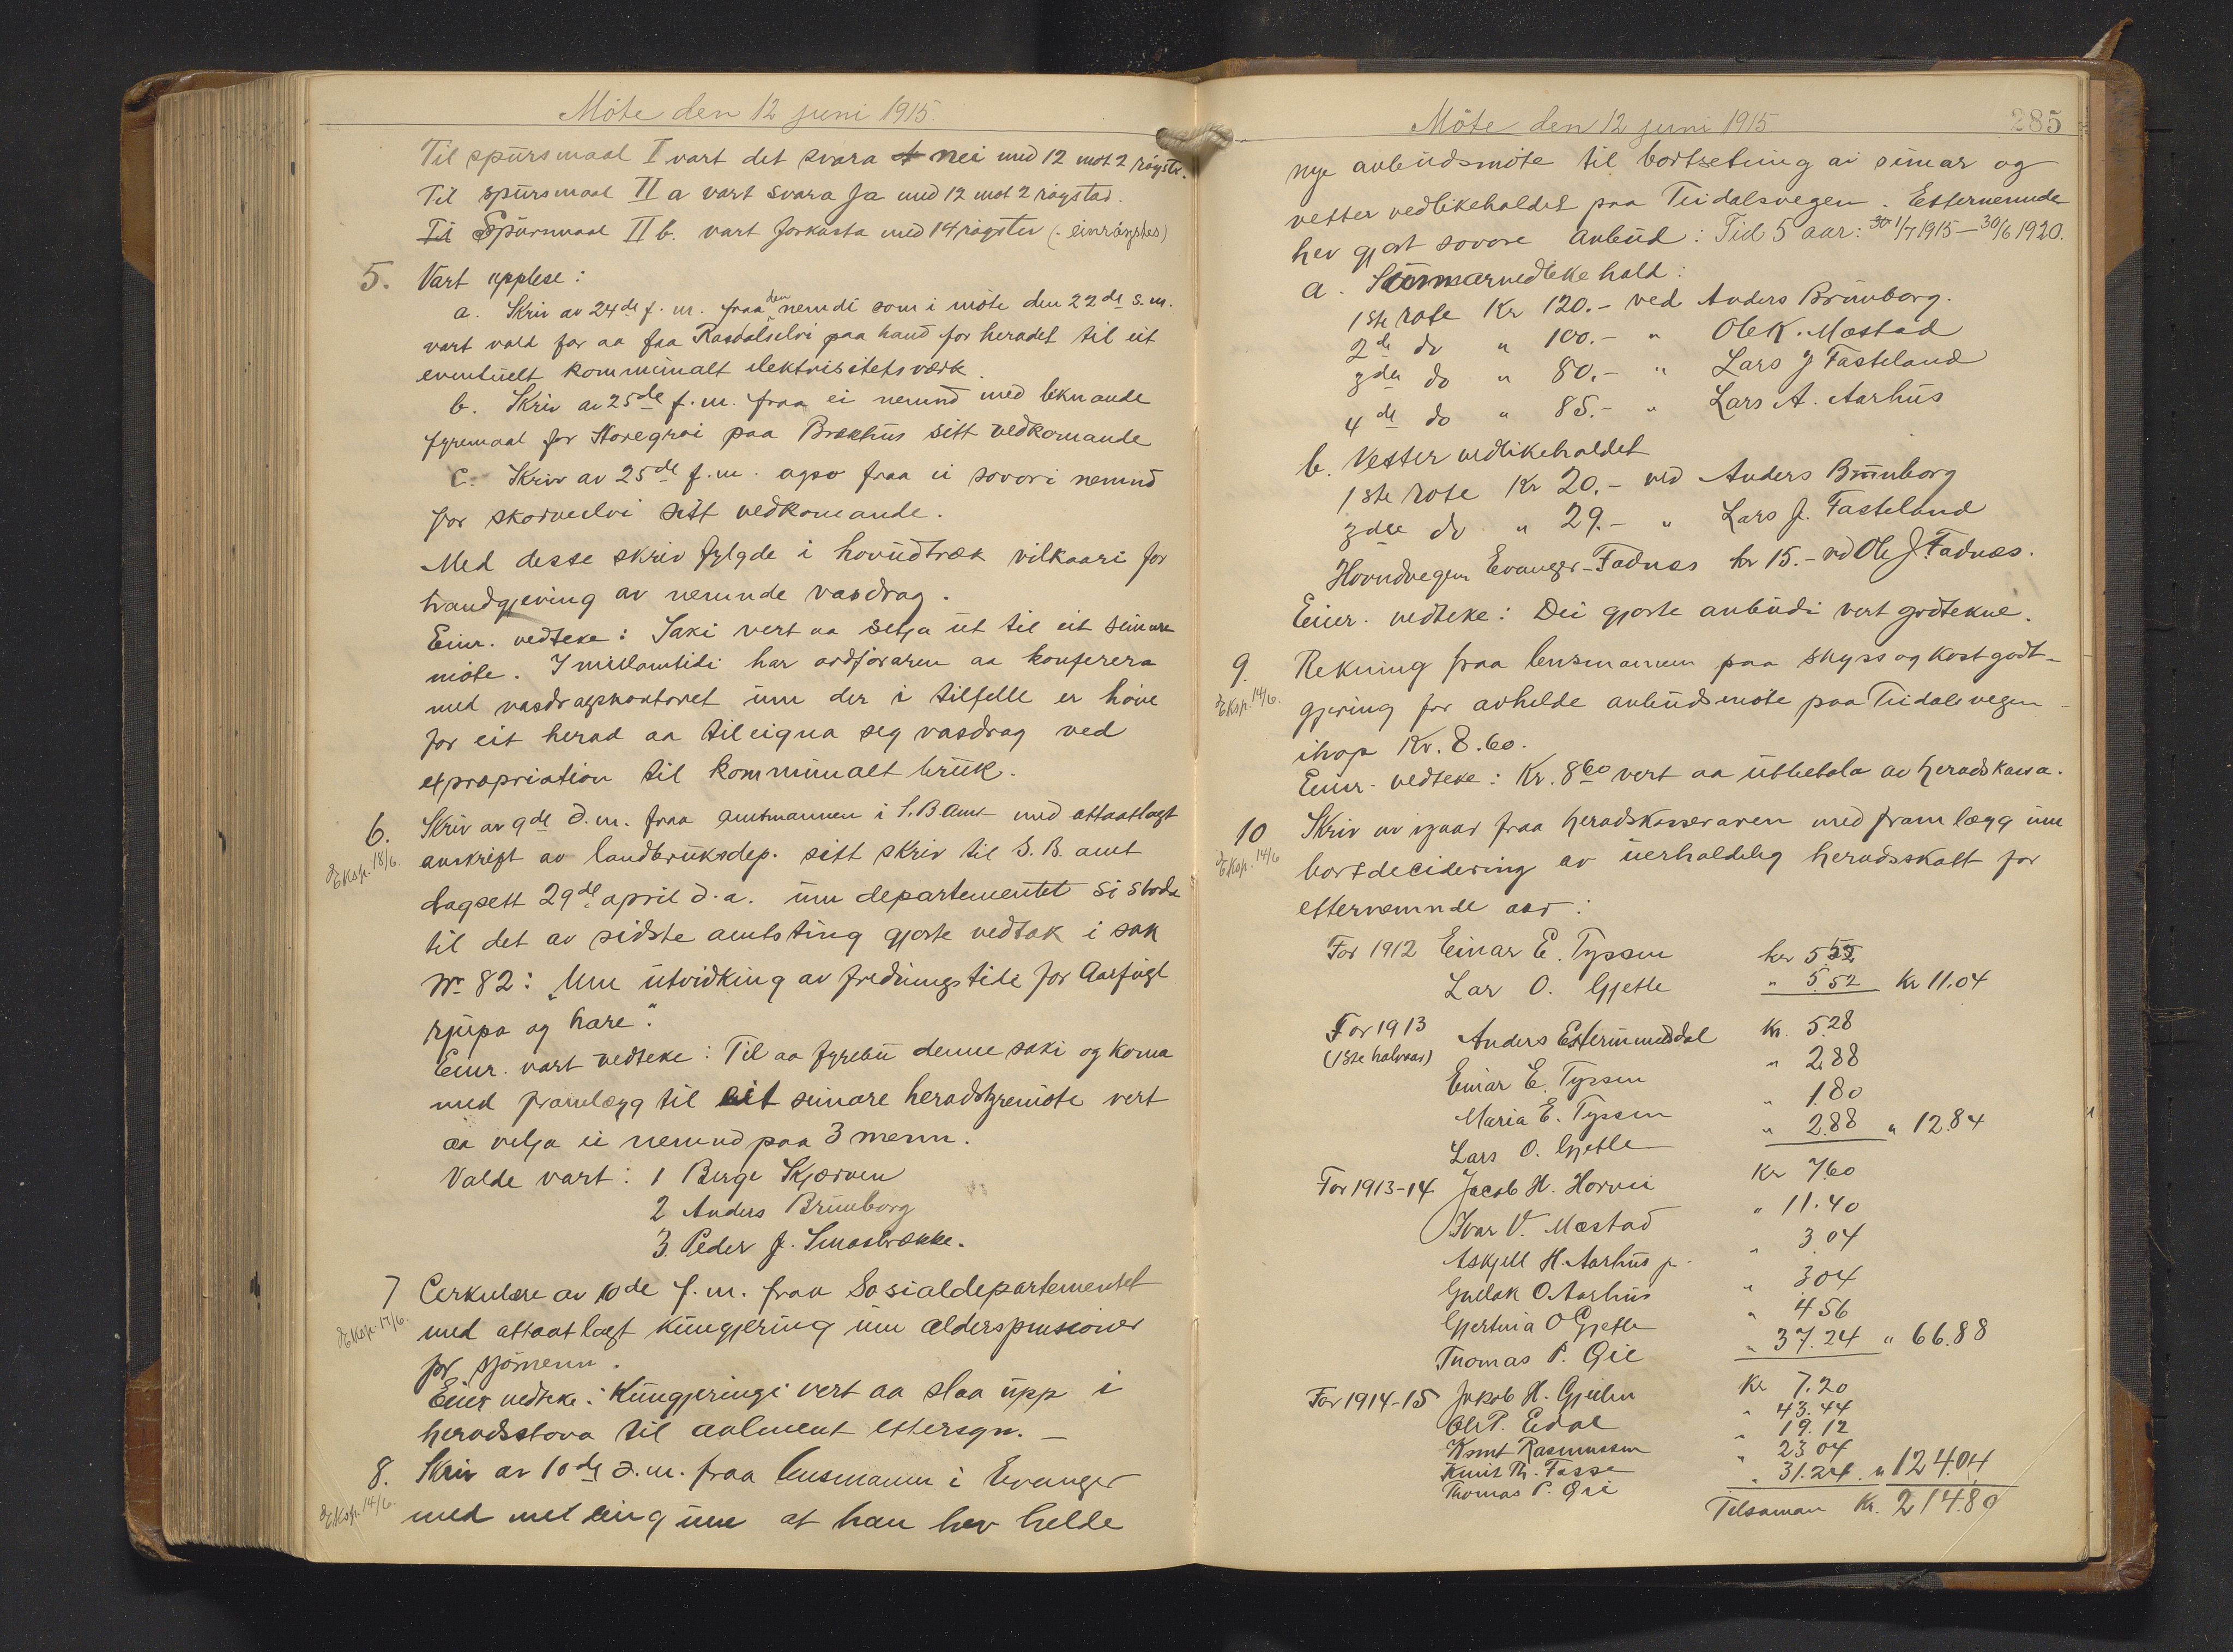 Möte den 12 juni 1915.
Til spursmaal I vart det svara nei med 12 mot 2 röyster.
Til spursmaal II a vart svara Ja med 12 mot 2 röystar.
Til Spursmaal II b. vart forkasta med 14 röyster (- einröystes)
5. Vart upplese:
a. Skriv av 24de f. m. fraa den nemdi som i möte den 22de s. m.
vart vald for aa faa Rasdalselvi paa hand for heradet til eit
eventuelt kommunalt elektrisitetsværk.
b. Skriv av 25de f. m. fraa ei nemnd med liknande
fyremaal for Horegroi paa Brækhus sitt vedkomande
C. Skriv av 25de f. m. ogso fraa ei sovori nemnd
for skorveelvi sitt vedkomande.
Med desse skriv fylgde i hovudtræk vilkaari for
handgjeving av nemnde vasdrag.
Einr. vedteke: Saki vert aa setja ut til eit seinare
möte. I millomtidi har ordföraren aa konferera
med vasdragskontoret um der i tilfelle er höve
for eit herad aa tileigna seg vasdrag ved
expropriation til kommunalt bruk.
6. Skriv av 9de d. m. fraa amtmannen i S. B amt med attaatlagt
Eksp. 18/6.
avskrift av landbruksdep. sitt skriv til S. B. amt
dagsett 29de april d. a. um departementet si stoda
til det av sidste amtsting gjorte vedtak i sak
Nr. 82: "Um utvidking av fredningstidi for Aarfugl
rjupa og hare".
Einr. vart vedteke: Til aa fyrebu denne saki og koma
med framlegg til eit seinare heradstyremöte vert
aa velja ei nemnd paa 3 menn.
Valde vart: 1 Berge Skjerven
2 Anders Brunborg
3. Peder J. Smabrekke.
7 Cerkulære av 10de f. m. fraa Sosialdepartementet
Eksp. 17/6.
med attaatlagt kungjering um alderspensioner
for sjömenn.
Einr vedteke: Kungjeringi vert aa slaa upp i
heradsstova til aalment ettersyn. -
8. Skriv av 10de d. m. fraa lensmann i Evanger
Eksp. 14/6.
med melding um at han hev helde
Möte den 12 juni 1915
285
nye anbudsmöte til bortsetning av sumar og
vetter vedlikehaldet paa Teidalsvegen. Etternemnde
hev gjort sovore anbud: Tid 5 aar: 1/7 1915 - 30/6 1920.
a. Sumarvedlikehald:
1ste rote Kr 120.- ved Anders Brunborg.
2de do " 100.- " Ole K. Mæstad
3die do " 80.- " Lars J Fasteland
4de do " 85.- " Lars A. Aarhus
b. Vetter vedlikehaldet
1ste rote Kr 20.- ved Anders Brunborg
3die do " 29.- " Lars J. Fasteland
Hovudvegen Evanger-Fadnes kr 15.- ved Ole J. Fadnes.
Einr. vedteke: Dei gjorte anbudi vert godtekne.
9. Rekning fraa lensmannen paa skyss og kostgodt-
Eksp. 14/6.
gjering for avhelde anbudsmöte paa Teidalsvegen
ihop Kr. 8.60.
Einr. vedteke: Kr. 8.60 vert aa utbetala av heradskassa.
10 Skriv av igaar fraa heradskasseraren med framlegg um
Eksp. 14/6
bortdecidering av uerhaldeleg heradsskatt for
etternemnde aar:
For 1912 Einar E. Tyssen kr 5.52
Lar O. Gjetle " 5.52 Kr 11.04
For 1913 Anders Exterimuddal Kr. 5.28
(1ste halvaar)
Einar E. Tyssen " 2.88
Maria E. Tyssen " 1.80
Lars O. Gjetle " 2.88 " 12.84
For 1913-14 Jacob H. Horvei Kr 7.60
Ivar V. Mæstad " 11.40
Askjell H. Aarhus " 3.04
Gudlak O Aarhus " 3.04
Gjertina O Gjetle " 4.56
Thomas P. Gie " 37.24 " 66.88
For 1914-15 Jakob H. Gjeilen Kr 7.20
Ole P. Eidal " 43.44
Knut Rasmussen " 19.12
Knut Th. Fasse " 23.04
Thomas P. Gie " 31.24 " 124.04
Tilsaman Kr. 214.80